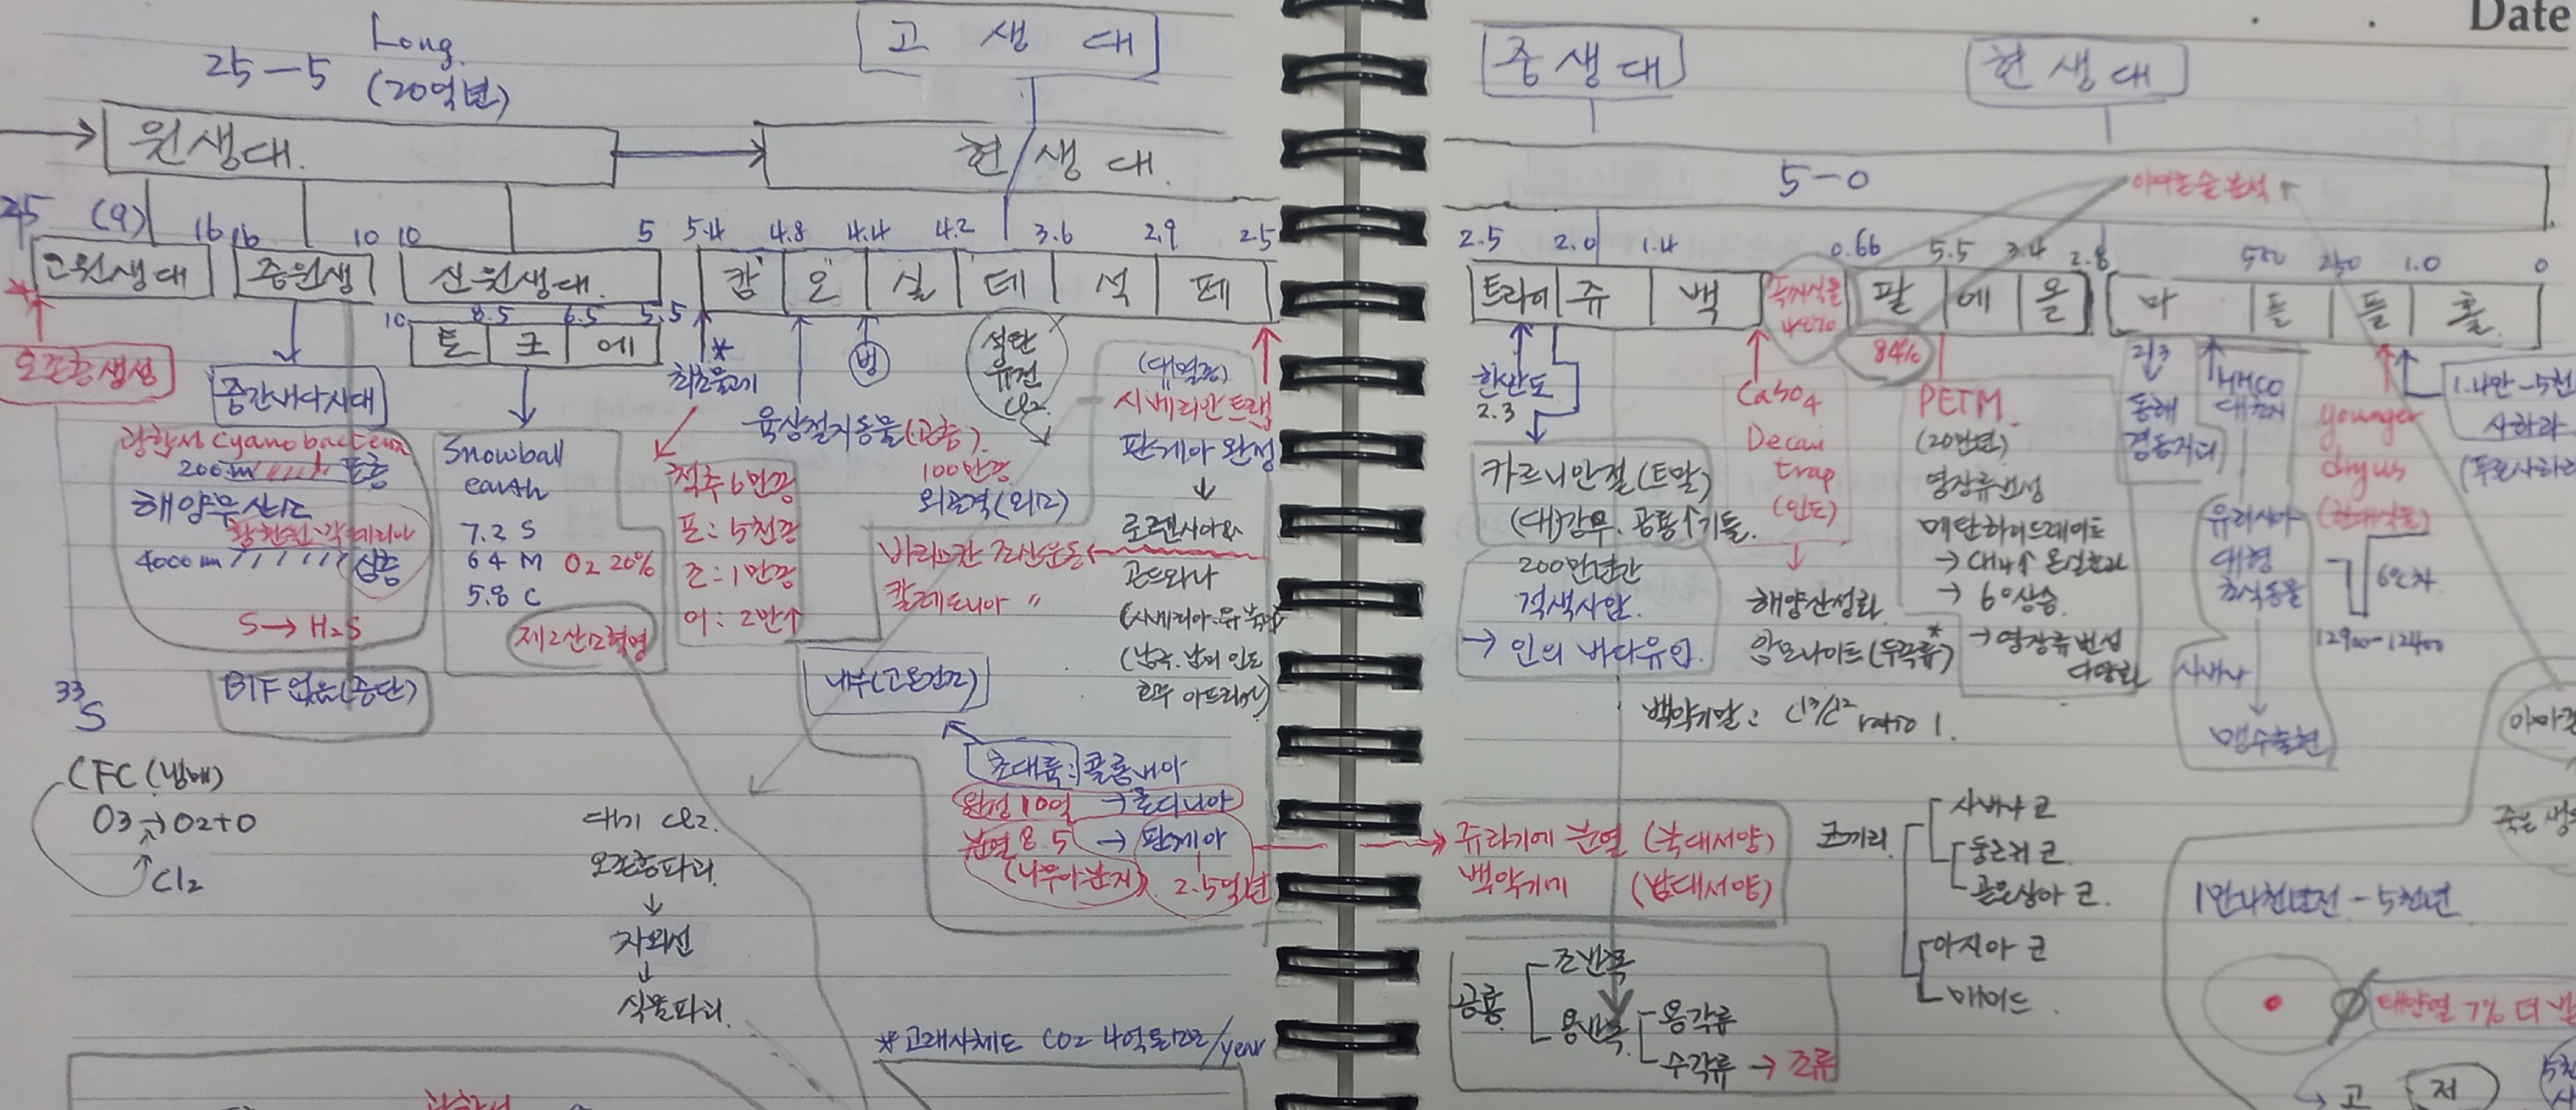 Date
Long.
25-5 (20억년)
고 생 대
중 생 대
현 생 대
원생대.
현 생 대.
5-0
25 (9) 16 16 10 10 5
5.4 4.8 4.4 4.2 3.6 2.9 2.5
2.5 2.0 1.4 0.66 5.5 3.4 2.8
250 1.0 0
고원생대 중원생 신원생대.
캄 오 실 데 석 페
트라이 쥬 백
팔 에 올 마 플 플 홀
10 8.5 6.5 5.5
토 크 에
84%
오존층생성
중간바다시대
광합성 cyanobacteria
200m 표층
해양무산소
황환원 박테리아
4000m 심층
S → H₂S
BIF 없음(중단)
33
S
Snowball
earth
7.2 S
64 M O2 20%
5.8 C
제2산소혁명
*
최초물고기
척추6만종
포: 5천종
조: 1만종
어: 2만↑
빙
육상절지동물(곤충).
100만종
외골격(외피)
석탄
유전
Cl2.
(대멸종)
시베리안트랩
판게아 완성
↓
로렌시아와
곤드와나
바리스칸 조산운동
칼레도니아 〃
내부(고온건조)
초대륙: 콜롬비아
완성10억 → 로디니아
분열8.5 → 판게아
2.5억년
CFC(냉매)
O3 → O2+O
↑
Cl2
대기 Cl2.
오존층파괴.
↓
자외선
↓
식물파괴.
*고래사체도 CO2 4억톤 /year
한반도
2.3
카르니안절(트말)
(대)강우. 공룡↑기들.
200만년간
적색사암.
→ 인의 바다유입.
CaSO4
Decan
trap
(인도)
↓
해양산성화
암모나이트(두족류)
*
백악기말: C13/C12 ratio 1.
PETM
(20만년)
영장류번성
메탄하이드레이트
→ 대기↑ 온실효과
→ 6°상승.
→ 영장류번성
다양화
2.3
↓
동해
MMCO
유라시아
대형
초식동물
사바나
맹수출현
younger
dryus
6℃차
12900-12400
1.4만-5천
사하라
(푸른사하라
쥬라기에 분열 (북대서양)
백악기에 (남대서양)
코끼리
사바나 코
둥근귀 코.
곧은상아 코.
아시아 코
매머드
1만4천년전-5천년
공룡
조반목
용반목
용각류
수각류 → 조류
태양열 7% 더
고
저